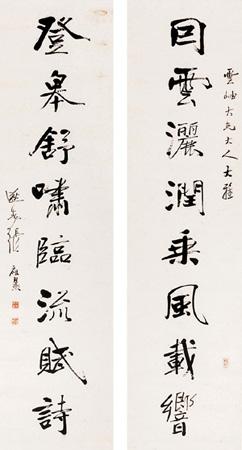 雲岫大兄大人大雅
回雲灑潤乘風載響
登皋舒嘯臨流賦詩